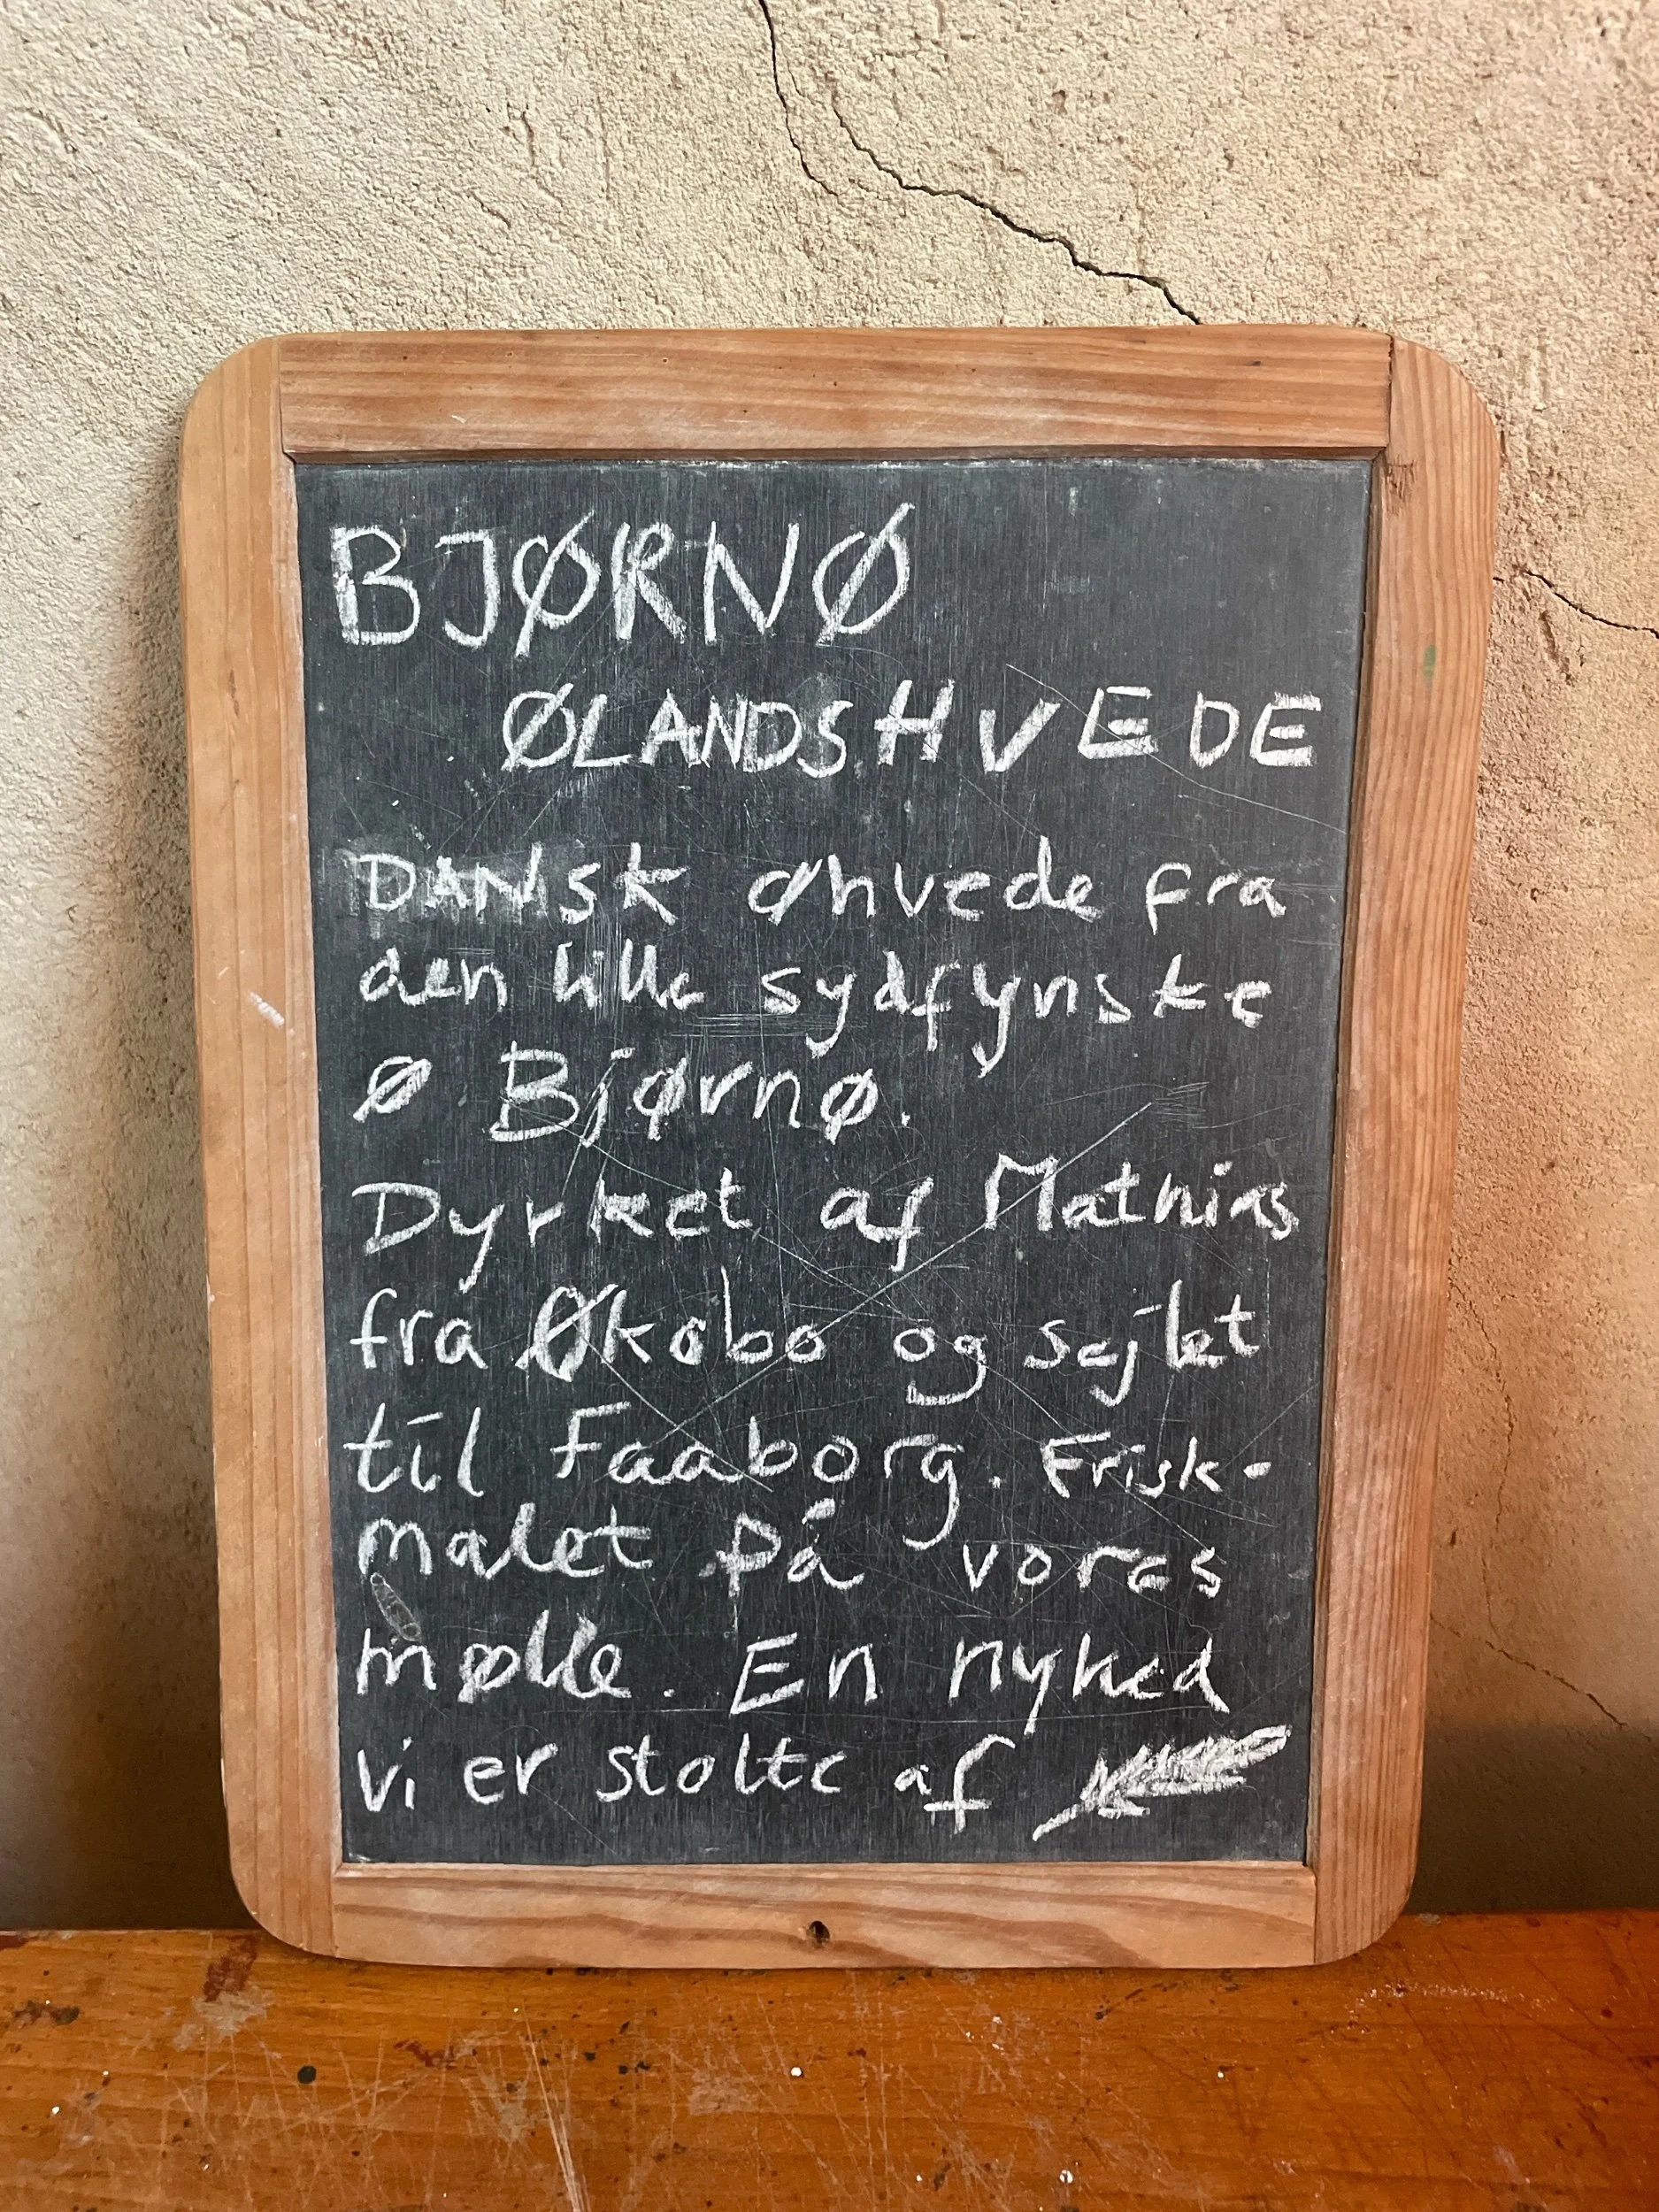 BJØRNØ
ØLANDSHVEDE
DANSK øhvede fra
den lille sydfynske
ø Bjørnø.
Dyrket af Mathias
fra Økobo og sejlet
til Faaborg. Frisk-
malet på vores
mølle. En nyhed
vi er stolte af